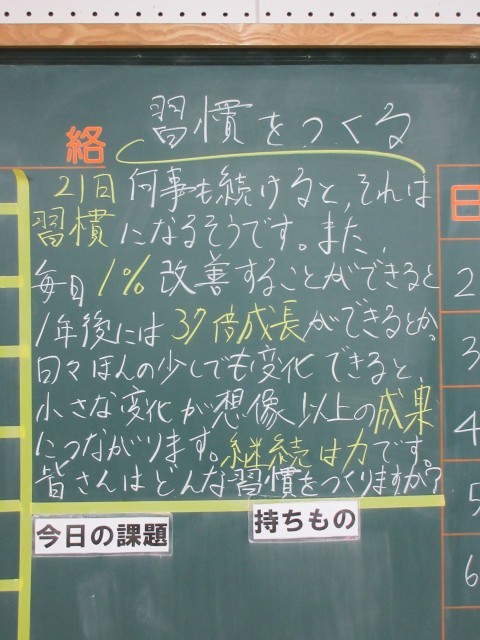 習慣をつくる
絡
21日何事も続けると、それは
習慣になるそうです。また、
毎日1%改善することができると
1年後には37倍成長ができるとか。
日々ほんの少しでも変化できると、
小さな変化が想像以上の成果
につながります。継続は力です。
皆さんはどんな習慣をつくりますか?
今日の課題
持ちもの
日
2
3
4
5
6